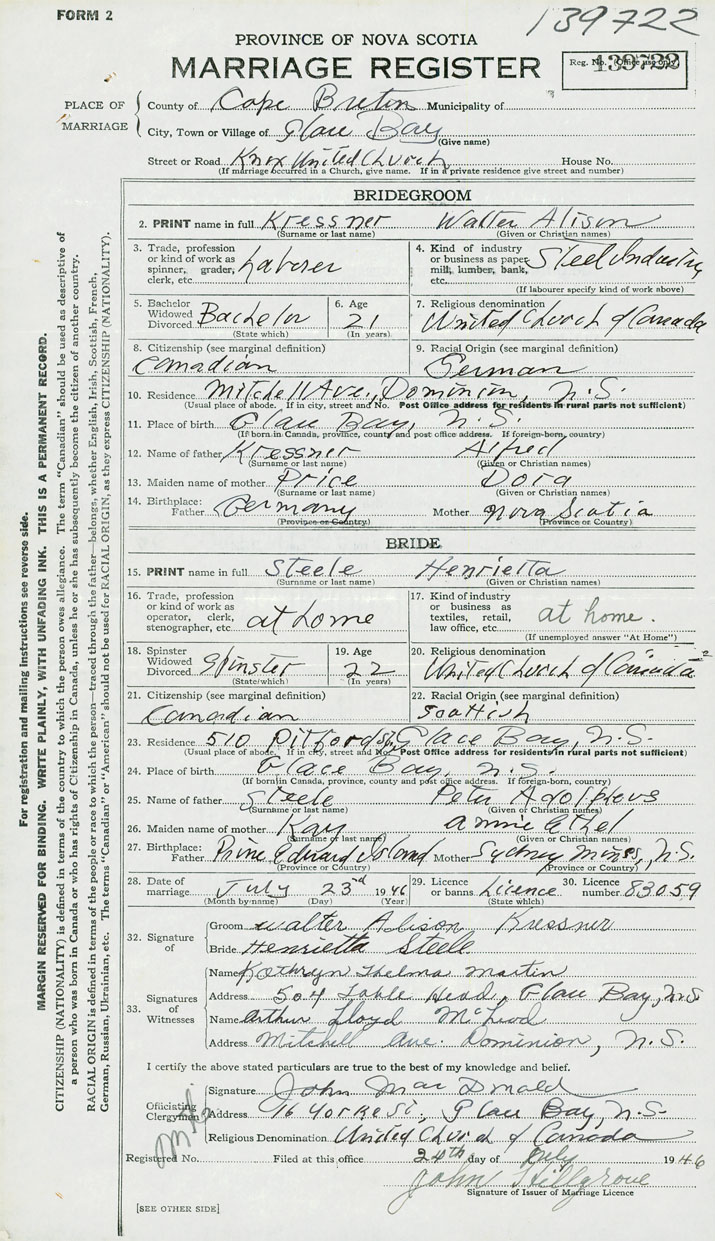 FORM 2
139722
PROVINCE OF NOVA SCOTIA
MARRIAGE REGISTER
Reg. No. (Office use only) 139722
PLACE OF MARRIAGE
County of Cape Breton Municipality of
City, Town or Village of Glace Bay
(Give name)
Street or Road Knox United Church House No.
(If marriage occurred in a Church, give name. If in a private residence give street and number)
BRIDEGROOM
2. PRINT name in full Kressner Walter Alison
(Surname or last name) (Given or Christian names)
3. Trade, profession or kind of work as spinner, grader, clerk, etc. Laborer
4. Kind of industry or business as paper mill, lumber, bank, etc. Steel Industry
(If labourer specify kind of work above)
5. Bachelor Widowed Divorced Bachelor (State which)
6. Age 21 (In years)
7. Religious denomination United Church of Canada
8. Citizenship (see marginal definition) Canadian
9. Racial Origin (see marginal definition) German
10. Residence Mitchell Ave., Dominion, N.S.
(Usual place of abode. If in city, street and No. Post Office address for residents in rural parts not sufficient)
11. Place of birth Glace Bay, N.S.
(If born in Canada, province, county and post office address. If foreign-born, country)
12. Name of father Kressner Alfred
(Surname or last name) (Given or Christian names)
13. Maiden name of mother Price Dora
(Surname or last name) (Given or Christian names)
14. Birthplace: Father Germany Mother Nova Scotia
(Province or Country) (Province or Country)
BRIDE
15. PRINT name in full Steele Henrietta
(Surname or last name) (Given or Christian names)
16. Trade, profession or kind of work as operator, clerk, stenographer, etc. at home
17. Kind of industry or business as textiles, retail, law office, etc. at home.
(If unemployed answer "At Home")
18. Spinster Widowed Divorced Spinster (State which)
19. Age 22 (In years)
20. Religious denomination United Church of Canada
21. Citizenship (see marginal definition) Canadian
22. Racial Origin (see marginal definition) Scottish
23. Residence 510 Pitford St, Glace Bay, N.S.
(Usual place of abode. If in city, street and No. Post Office address for residents in rural parts not sufficient)
24. Place of birth Glace Bay, N.S.
(If born in Canada, province, county and post office address. If foreign-born, country)
25. Name of father Steele Peter Adolphus
(Surname or last name) (Given or Christian names)
26. Maiden name of mother Kay Annie Ethel
(Surname or last name) (Given or Christian names)
27. Birthplace: Father Prince Edward Island Mother Sydney Mines, N.S.
(Province or Country) (Province or Country)
28. Date of marriage July 23rd 1946
(Month by name) (Day) (Year)
29. Licence or banns Licence (State which)
30. Licence number 83059
32. Signature of
Groom Walter Alison Kressner
Bride Henrietta Steele
33. Signatures of Witnesses
Name Kathryn Thelma Martin
Address 504 Table Head, Glace Bay, N.S
Name Arthur Lloyd McLeod
Address Mitchell Ave. Dominion, N.S.
I certify the above stated particulars are true to the best of my knowledge and belief.
Officiating Clergyman
Signature John MacDonald
Address 76 Yorke St., Glace Bay, N.S.
Religious Denomination United Church of Canada
Registered No. Filed at this office 24th day of July 1946
John Hillgrove
Signature of Issuer of Marriage Licence
[SEE OTHER SIDE]
For registration and mailing instructions see reverse side.
MARGIN RESERVED FOR BINDING. WRITE PLAINLY, WITH UNFADING INK. THIS IS A PERMANENT RECORD.
CITIZENSHIP (NATIONALITY) is defined in terms of the country to which the person owes allegiance. The term "Canadian" should be used as descriptive of
a person who was born in Canada or who has rights of Citizenship in Canada, unless he or she has subsequently become the citizen of another country.
RACIAL ORIGIN is defined in terms of the people or race to which the person—traced through the father—belongs, whether English, Irish, Scottish, French,
German, Russian, Ukrainian, etc. The terms "Canadian" or "American" should not be used for RACIAL ORIGIN, as they express CITIZENSHIP (NATIONALITY).